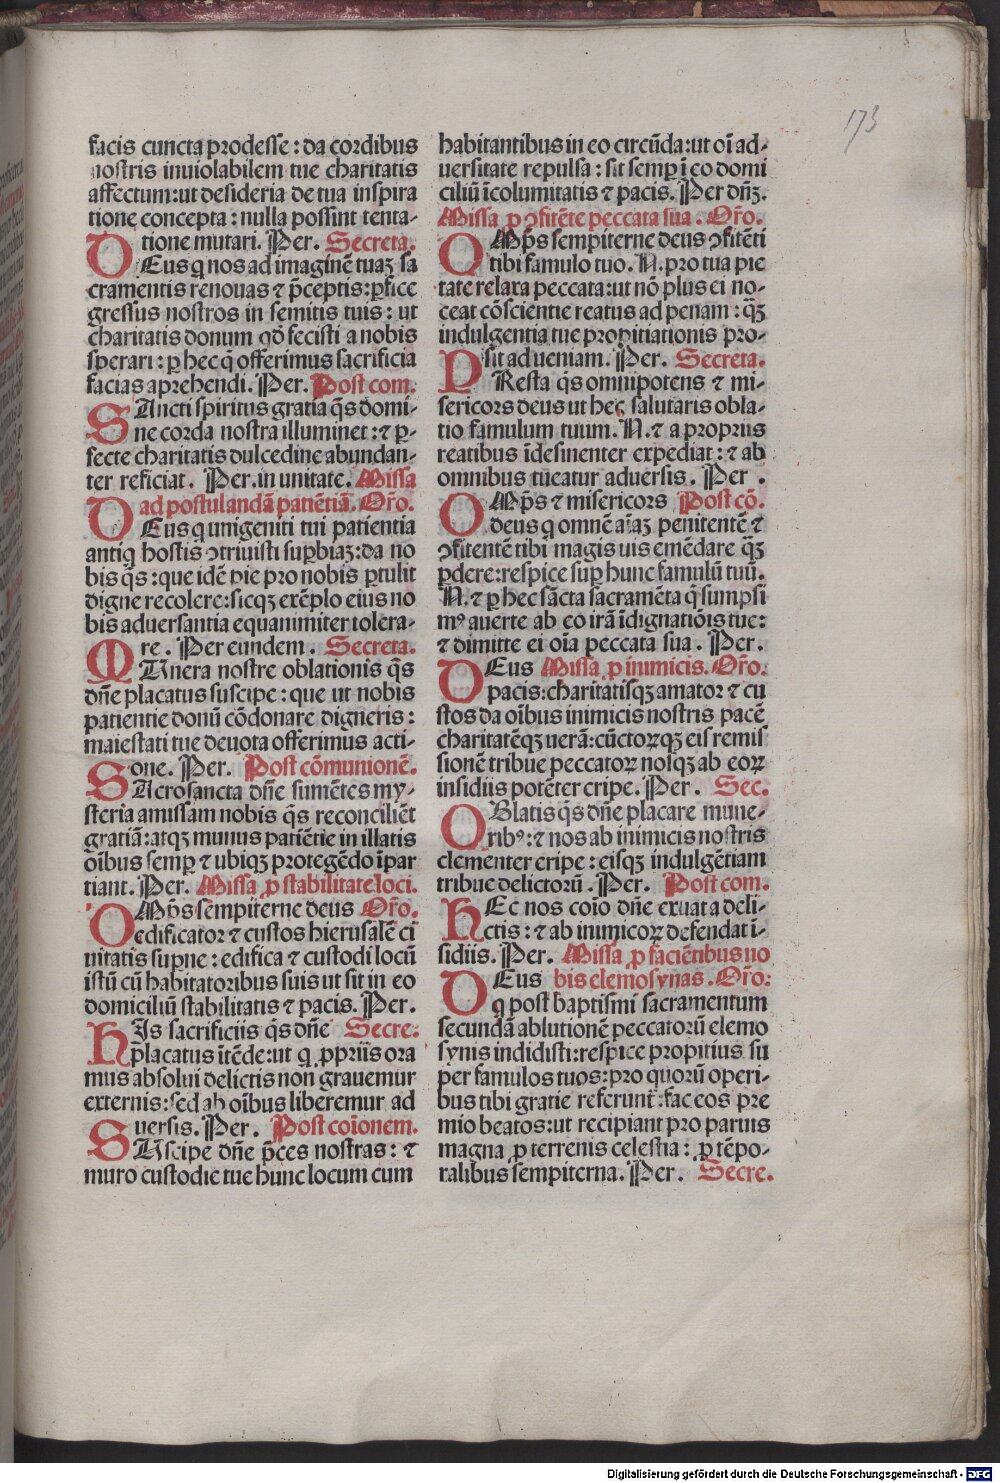 173
facis cuncta prodesse : da cordibus
nostris inuiolabilem tue charitatis
affectum:ut desideria de tua inspira
tione concepta : nulla possint tenta-
tione mutari. Per. Secreta.
DEus q nos ad imaginē tuaꝫ sa
cramentis renouas ⁊ p̄ceptis:ꝑfice
gressus nostros in semitis tuis : ut
charitatis donum qd̄ fecisti a nobis
sperari : ꝑ hec q̄ offerimus sacrificia
facias aprehendi. Per. Post com.
SAncti spiritus gratia q̄s domi-
ne corda nostra illuminet :⁊ ꝑ-
fecte charitatis dulcedine abundan-
ter reficiat. Per.in unitate. Missa
ad postulandā patiētiā. Or̄o.
DEus q unigeniti tui patientia
antiq hostis ꝯtriuisti suꝑbiaꝫ:da no
bis q̄s :que idē pie pro nobis ꝑtulit
digne recolere:sicqꝫ exēplo eius no
bis aduersantia equanimiter tolera-
re. Per eundem. Secreta.
MUnera nostre oblationis q̄s
dn̄e placatus suscipe : que ut nobis
patientie donū cōdonare digneris :
maiestati tue deuota offerimus acti-
one. Per. Post cōmunionē.
SAcrosancta dn̄e sumētes my-
steria amissam nobis q̄s reconciliēt
gratiā:atqꝫ munus patiētie in illatis
oībus semꝑ ⁊ ubiqꝫ protegēdo īpar
tiant. Per. Missa ꝓ stabilitate loci.
OMp̄s sempiterne deus Or̄o.
edificator ⁊ custos hierusalē ci
uitatis suꝑne : edifica ⁊ custodi locū
istū cū habitatoribus suis ut sit in eo
domiciliū stabilitatis ⁊ pacis. Per.
HIs sacrificiis q̄s dn̄e Secre.
placatus ītēde:ut q ꝓpriis ora
mus absolui delictis non grauemur
externis:sed ab oībus liberemur ad
uersis. Per. Post coīonem.
SUscipe dn̄e p̄ces nostras : ⁊
muro custodie tue hunc locum cum
habitantibus in eo circūda:ut oī ad-
uersitate repulsa : sit semꝑ ī eo domi
ciliū īcolumitatis ⁊ pacis. Per dn̄ꝫ.
Missa ꝓ ꝯfitēte peccata sua . Or̄o.
OMp̄s sempiterne deus ꝯfitēti
tibi famulo tuo. N. pro tua pie
tate relaxa peccata:ut nō plus ei no-
ceat cōscientie reatus ad penam : qꝫ
indulgentia tue propitiationis pro-
sit ad ueniam. Per. Secreta.
PResta q̄s omnipotens ⁊ mi-
sericors deus ut hec salutaris obla-
tio famulum tuum. N. ⁊ a propriis
reatibus īdesinenter expediat: ⁊ ab
omnibus tueatur aduersis. Per .
OMp̄s ⁊ misericors Post cō.
deus q omnē aīaꝫ penitentē ⁊
ꝯfitentē tibi magis uis emēdare qꝫ
ꝑdere:respice suꝑ hunc famulū tuū.
N. ⁊ ꝑ hec sācta sacramēta q̄ sumpsi
mꝰ auerte ab eo irā īdignatiōis tue:
⁊ dimitte ei oīa peccata sua. Per.
DEus Missa ꝓ inimicis. Or̄o.
pacis:charitatisqꝫ amator ⁊ cu
stos da oībus inimicis nostris pacē
charitatēqꝫ uerā: cūctoꝝqꝫ eis remis
sionē tribue peccatoꝝ nosqꝫ ab eoꝝ
insidiis potēter eripe. Per. Sec.
OBlatis q̄s dn̄e placare mune-
ribꝰ:⁊ nos ab inimicis nostris
clementer eripe : eisqꝫ indulgētiam
tribue delictorū . Per. Post com.
HEc nos coīo dn̄e exuat a deli-
ctis: ⁊ ab inimicoꝝ defendat ī-
sidiis. Per. Missa ꝓ faciētibus no
bis elemosynas. Or̄o:
DEus
q post baptismi sacramentum
secundā ablutionē peccatorū elemo
synis indidisti:respice propitius su
per famulos tuos:pro quorū operi-
bus tibi gratie referunt̄: fac eos pre
mio beatos:ut recipiant pro paruis
magna ꝓ terrenis celestia : ꝓ tēpo-
ralibus sempiterna. Per. Secre.
Digitalisierung gefördert durch die Deutsche Forschungsgemeinschaft - DFG